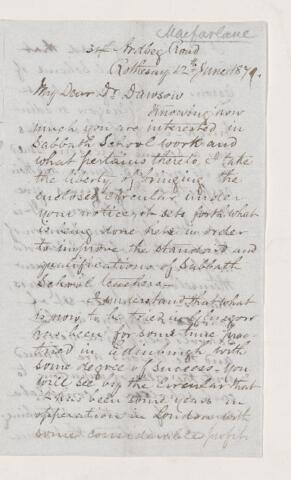 Macfarlane
34 Ardbeg Road
Rothesay 12th June 1879.
My Dear Dr Dawson
Knowing how
much you are interested in
Sabbath School work and
what pertains thereto, I take
the liberty of bringing the
enclosed circular under
your notice, it sets forth what
is being done here in order
to improve the standard and
qualifications of Sabbath
School teachers.
I understand that what
is now to be tried in Glasgow
has been for some time prac
tised in Edinburgh with
some degree of success. You
will see by the circular that
it has been some years in
operation in London with
some considerable profit